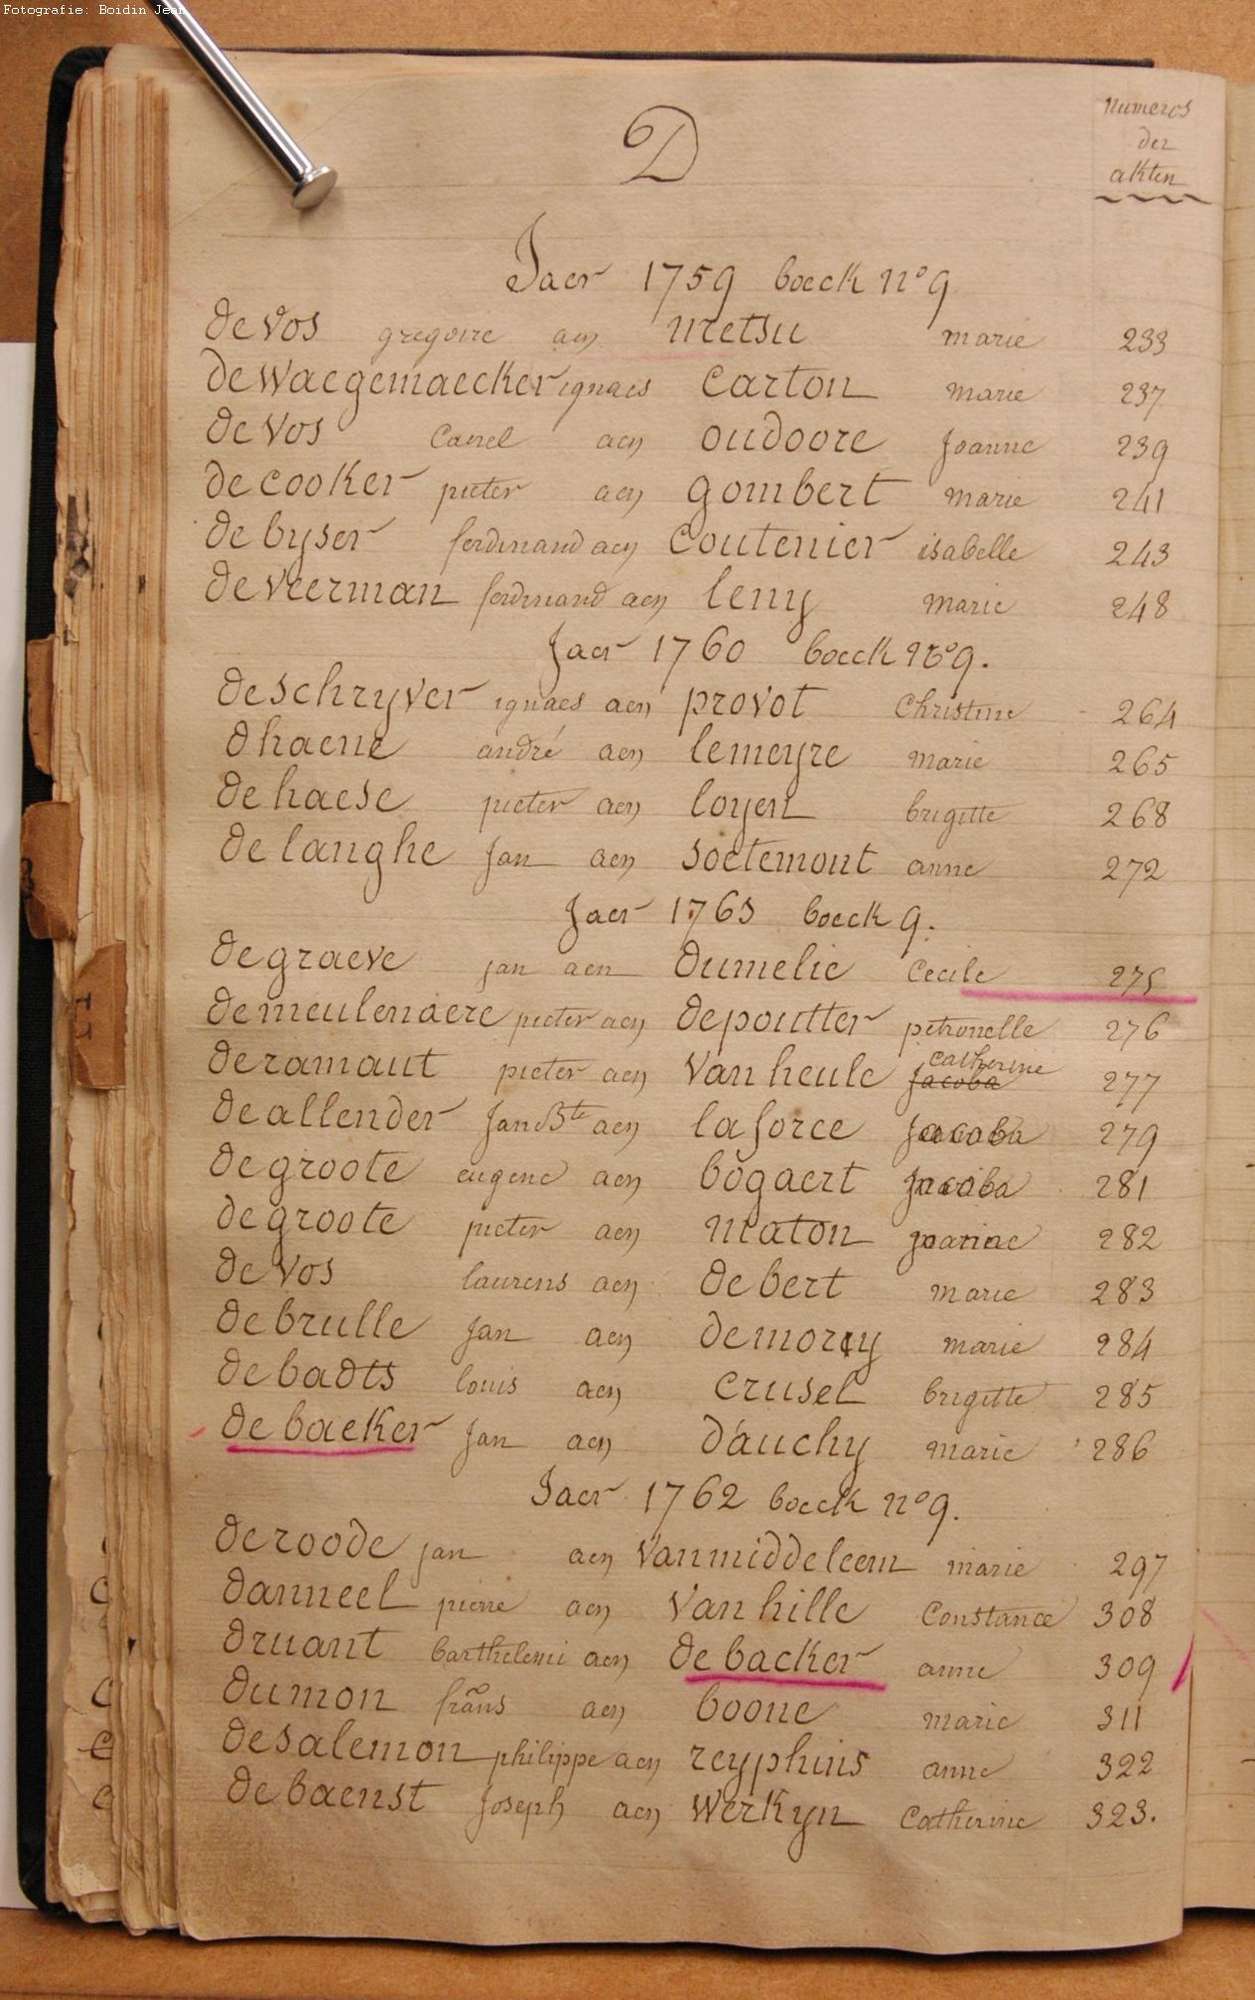 Fotografie: Boidin Jean
D
numeros
der
akten
Jaer 1759 boeck n° 9
de vos gregoire aen metsu marie 233
de waegemaecker ignaes carton marie 237
de vos carel aen oudoore joanne 239
de cooker pieter aen gombert marie 241
de byser ferdinand aen coutenier isabelle 243
de veerman ferdinand aen leny marie 248
Jaer 1760 boeck n° 9.
deschryver ignaes aen provot christine 264
dhaene andré aen lemeyre marie 265
de haese pieter aen loyen brigitte 268
de langhe jan aen soetemont anne 272
Jaer 1763 boeck 9.
de graeve jan aen dumelie cecile 275
demeulenaere pieter aen depoutter petronelle 276
catherine
deramaut pieter aen vanheule jacoba 277
de allender jan Bte aen laforce jacoba 279
de groote eugene aen bogaert jacoba 281
de groote pieter aen maton 282
de vos laurens aen de bert marie 283
de brulle jan aen marie 284
de badts louis aen crusel brigitte 285
de baeker jan aen d'auchy marie 286
Jaer 1762 boeck n° 9.
de roode jan aen vanmiddeleem marie 297
danneel pierre aen vanhille constance 308
druant barthelemi aen de backer anne 309
dumon frans aen boone marie 311
desalemon philippe aen reyphins anne 322
de baenst joseph aen werkyn catherine 323.